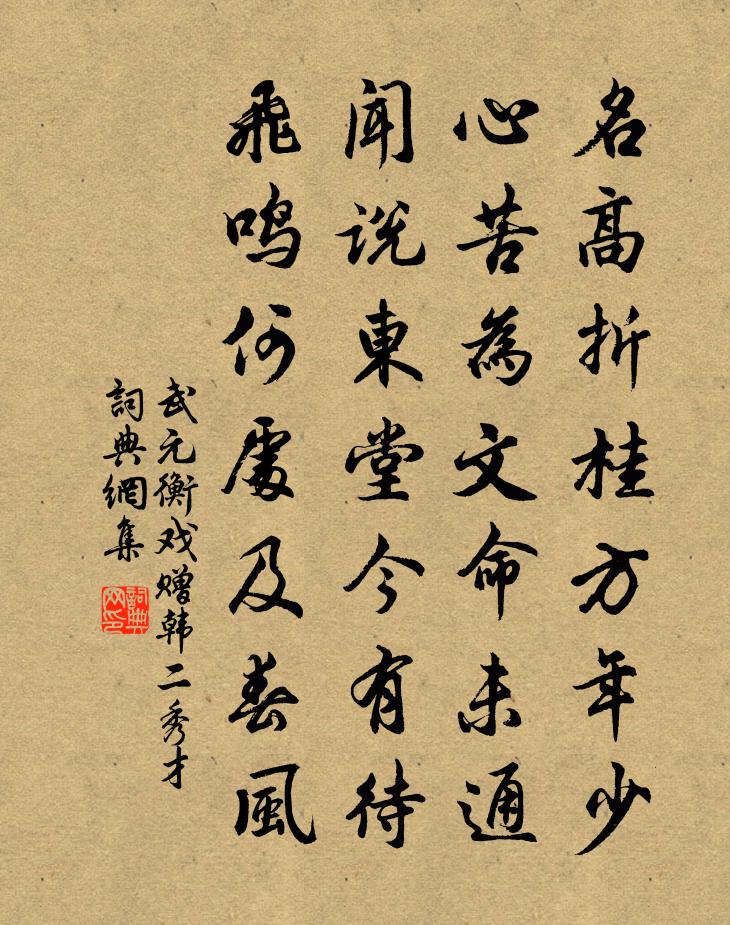 名高折桂方年少
心苦為文命未通
闻说東堂今有待
飛鸣何處及春風
武元衡戏赠韩二秀才
詞典網集
詞典
网印